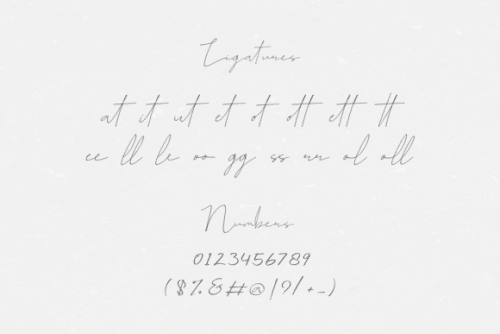 Ligatures
at it ut et ot ott ett tt
ee ll le oo gg ss rr ol oll
Numbers
0123456789
($%&#@|?/+-)